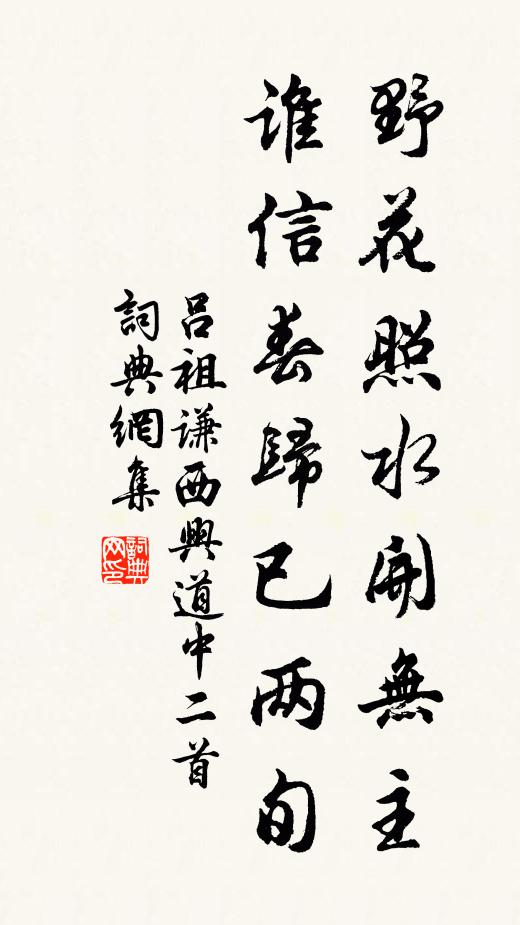 野花照水開無主
誰信春歸已兩旬
呂祖謙西興道中二首
詞典網集
詞典網印